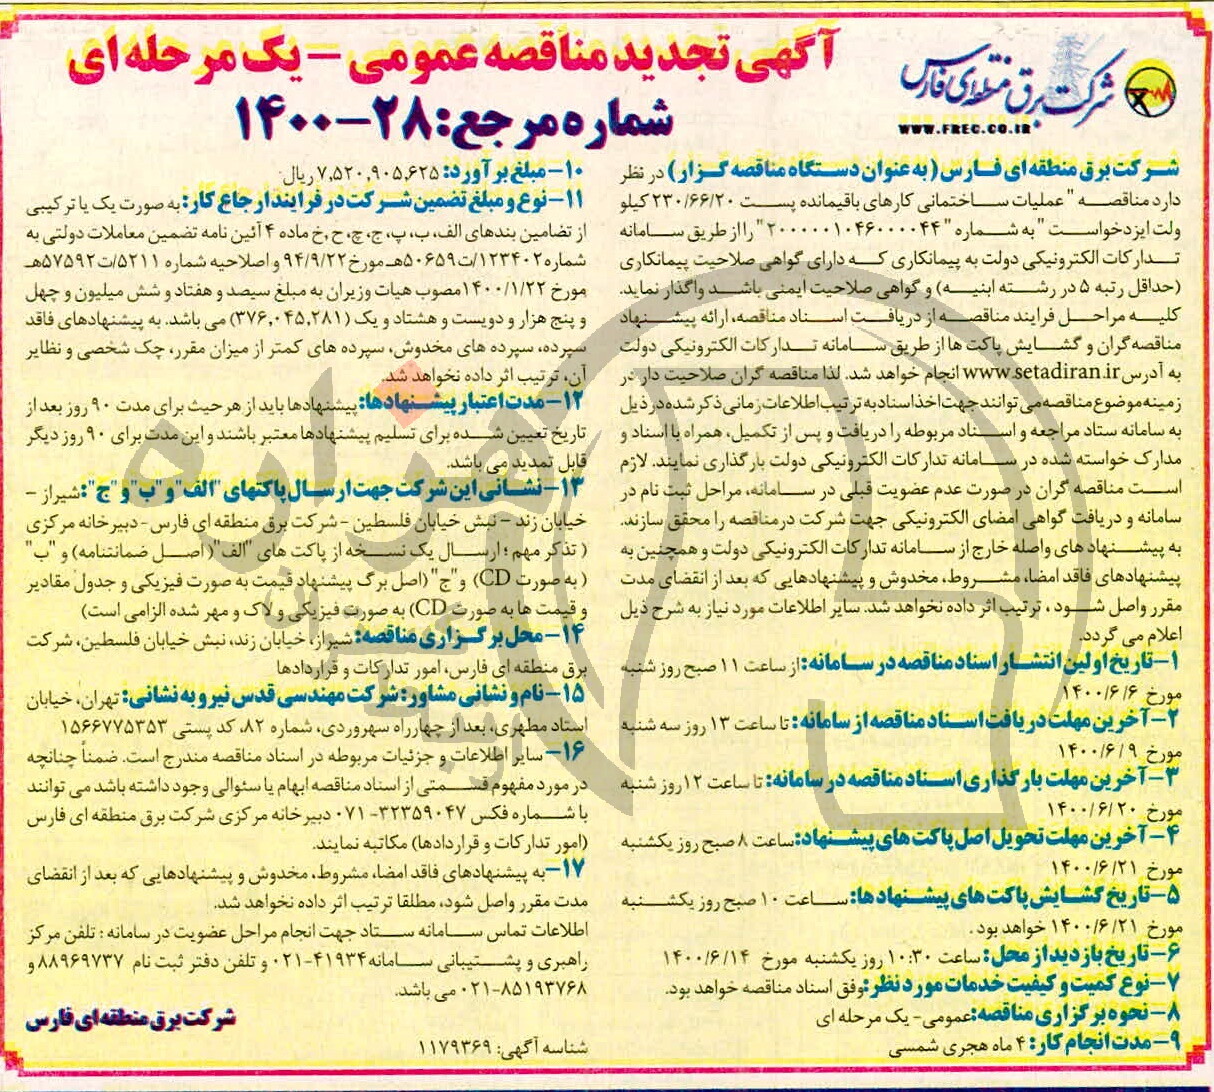 آگهی تجدید مناقصه عمومی – یک مرحله ای
شماره مرجع: ۲۸-۱۴۰۰
شرکت برق منطقه‌ای فارس
WWW.FREC.CO.IR
شرکت برق منطقه ای فارس (به عنوان دستگاه مناقصه گزار) در نظر
دارد مناقصه " عملیات ساختمانی کارهای باقیمانده پست ۲۳۰/۶۶/۲۰ کیلو
ولت ایزدخواست " به شماره " ۲۰۰۰۰۰۱۰۴۶۰۰۰۰۴۴ " را از طریق سامانه
تدارکات الکترونیکی دولت به پیمانکاری که دارای گواهی صلاحیت پیمانکاری
(حداقل رتبه ۵ در رشته ابنیه) و گواهی صلاحیت ایمنی باشد واگذار نماید.
کلیه مراحل فرایند مناقصه از دریافت اسناد مناقصه، ارائه پیشنهاد
مناقصه‌گران و گشایش پاکت ها از طریق سامانه تدارکات الکترونیکی دولت
به آدرس www.setadiran.ir انجام خواهد شد. لذا مناقصه گران صلاحیت دار در
زمینه موضوع مناقصه می توانند جهت اخذ اسناد به ترتیب اطلاعات زمانی ذکر شده در ذیل
به سامانه ستاد مراجعه و اسناد مربوطه را دریافت و پس از تکمیل، همراه با اسناد و
مدارک خواسته شده در سامانه تدارکات الکترونیکی دولت بارگذاری نمایند. لازم
است مناقصه گران در صورت عدم عضویت قبلی در سامانه، مراحل ثبت نام در
سامانه و دریافت گواهی امضای الکترونیکی جهت شرکت درمناقصه را محقق سازند.
به پیشنهاد های واصله خارج از سامانه تدارکات الکترونیکی دولت و همچنین به
پیشنهادهای فاقد امضا، مشروط، مخدوش و پیشنهادهایی که بعد از انقضای مدت
مقرر واصل شود ، ترتیب اثر داده نخواهد شد. سایر اطلاعات مورد نیاز به شرح ذیل
اعلام می گردد.
۱-تاریخ اولین انتشار اسناد مناقصه در سامانه: از ساعت ۱۱ صبح روز شنبه
مورخ ۱۴۰۰/۶/۶
۲-آخرین مهلت دریافت اسناد مناقصه از سامانه: تا ساعت ۱۳ روز سه شنبه
مورخ ۱۴۰۰/۶/۹
۳-آخرین مهلت بارگذاری اسناد مناقصه در سامانه: تا ساعت ۱۲روز شنبه
مورخ ۱۴۰۰/۶/۲۰
۴-آخرین مهلت تحویل اصل پاکت های پیشنهاد:ساعت ۸ صبح روز یکشنبه
مورخ ۱۴۰۰/۶/۲۱
۵-تاریخ گشایش پاکت های پیشنهادها: ساعت ۱۰ صبح روز یکشنبه
مورخ ۱۴۰۰/۶/۲۱ خواهد بود .
۶-تاریخ بازدید از محل: ساعت ۱۰:۳۰ روز یکشنبه مورخ ۱۴۰۰/۶/۱۴
۷-نوع کمیت و کیفیت خدمات مورد نظر:وفق اسناد مناقصه خواهد بود.
۸-نحوه برگزاری مناقصه:عمومی- یک مرحله ای
۹-مدت انجام کار: ۴ ماه هجری شمسی
۱۰-مبلغ برآورد: ۷,۵۲۰,۹۰۵,۶۲۵ ریال
۱۱-نوع و مبلغ تضمین شرکت در فرایند ارجاع کار: به صورت یک یا ترکیبی
از تضامین بندهای الف، ب، پ، ج، چ، ح ,خ ماده ۴ آئین نامه تضمین معاملات دولتی به
شماره ۱۲۳۴۰۲/ت۵۰۶۵۹هـ مورخ ۹۴/۹/۲۲ و اصلاحیه شماره ۵۲۱۱/ت۵۷۵۹۲هـ
مورخ ۱۴۰۰/۱/۲۲مصوب هیات وزیران به مبلغ سیصد و هفتاد و شش میلیون و چهل
و پنج هزار و دویست و هشتاد و یک (۳۷۶,۰۴۵,۲۸۱) می باشد. به پیشنهادهای فاقد
سپرده، سپرده های مخدوش، سپرده های کمتر از میزان مقرر، چک شخصی و نظایر
آن، ترتیب اثر داده نخواهد شد.
۱۲-مدت اعتبار پیشنهادها: پیشنهادها باید از هر حیث برای مدت ۹۰ روز بعد از
تاریخ تعیین شده برای تسلیم پیشنهادها معتبر باشند و این مدت برای ۹۰ روز دیگر
قابل تمدید می باشد.
۱۳-نشانی این شرکت جهت ارسال پاکتهای "الف" و "ب" و "ج": شیراز –
خیابان زند – نبش خیابان فلسطین – شرکت برق منطقه ای فارس – دبیرخانه مرکزی
( تذکر مهم ؛ ارسال یک نسخه از پاکت های "الف"( اصل ضمانتنامه) و "ب"
( به صورت CD) و"ج" (اصل برگ پیشنهاد قیمت به صورت فیزیکی و جدول مقادیر
و قیمت ها به صورت CD) به صورت فیزیکی و لاک و مهر شده الزامی است)
۱۴-محل برگزاری مناقصه: شیراز، خیابان زند، نبش خیابان فلسطین، شرکت
برق منطقه ای فارس، امور تدارکات و قراردادها
۱۵-نام و نشانی مشاور: شرکت مهندسی قدس نیرو به نشانی: تهران، خیابان
استاد مطهری، بعد از چهارراه سهروردی، شماره ۸۲، کد پستی ۱۵۶۶۷۷۵۳۵۳
۱۶-سایر اطلاعات و جزئیات مربوطه در اسناد مناقصه مندرج است. ضمناً چنانچه
در مورد مفهوم قسمتی از اسناد مناقصه ابهام یا سئوالی وجود داشته باشد می توانند
با شماره فکس ۳۲۳۵۹۰۴۷-۰۷۱ دبیرخانه مرکزی شرکت برق منطقه ای فارس
(امور تدارکات و قراردادها) مکاتبه نمایند.
۱۷-به پیشنهادهای فاقد امضا، مشروط، مخدوش و پیشنهادهایی که بعد از انقضای
مدت مقرر واصل شود، مطلقا ترتیب اثر داده نخواهد شد.
اطلاعات تماس سامانه ستاد جهت انجام مراحل عضویت در سامانه : تلفن مرکز
راهبری و پشتیبانی سامانه ۴۱۹۳۴-۰۲۱ و تلفن دفتر ثبت نام ۸۸۹۶۹۷۳۷ و
۸۵۱۹۳۷۶۸-۰۲۱ می باشد.
شرکت برق منطقه ای فارس
شناسه آگهی: ۱۱۷۹۳۶۹
هزاره